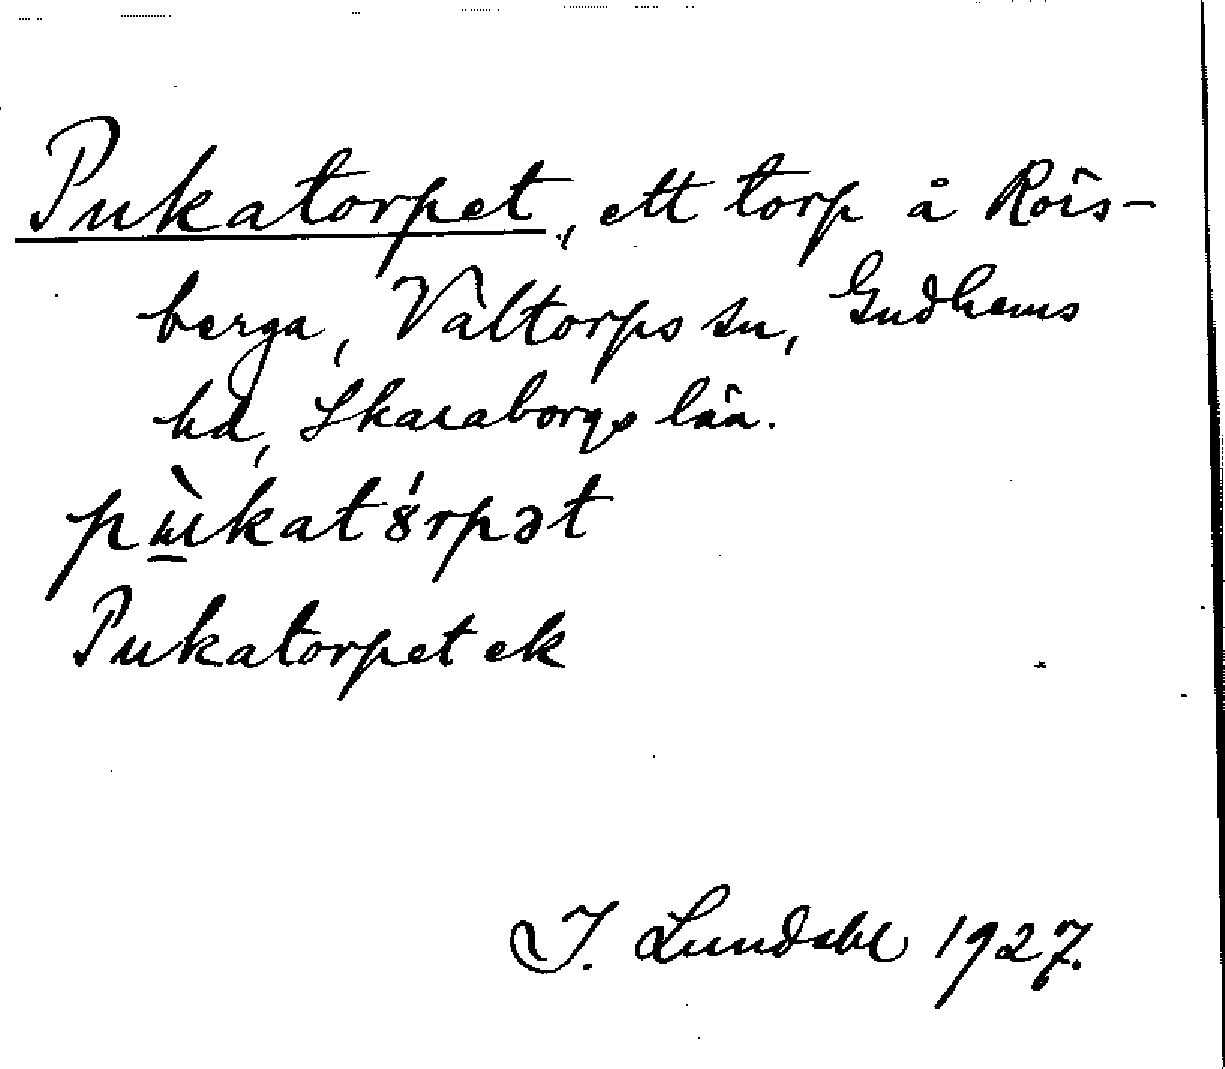 Pukatorpet, ett torp å Rös-
berga, Valtorps sn, Gudhems
hd, Skaraborgs län.
pɯ̀katȣ́rpət
Pukatorpet ek
I. Lundahl 1927.